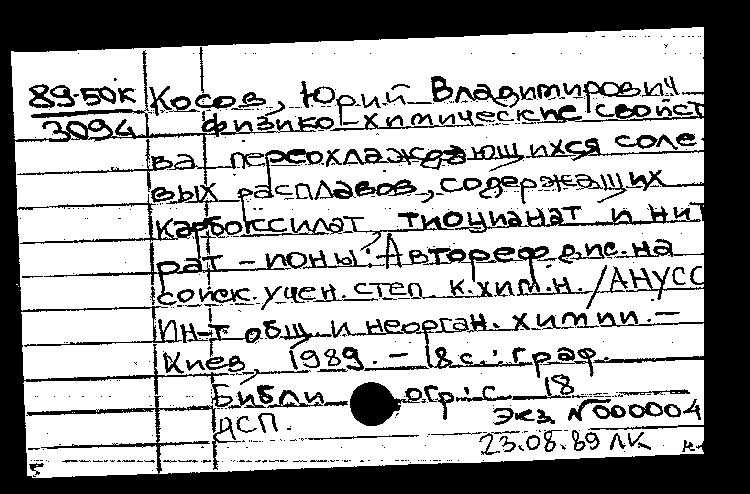 89-50К Косов, Юрий Владимирович
3094 Физико-химические свойст
ва переохлаждающихся соле
вых расплавов, содержащих
карбоксилат, тиоцианат и нит
рат-ионы: Автореф дис. на
соиск. учен. степ. к.хим.н. / АНУСС
Ин-т общ. и неорган. химии. -
Киев, 1989. - 18 с.: граф.
Библиогр.: с. 18
ДСП. Экз. N 000004
23.08.89 ЛК